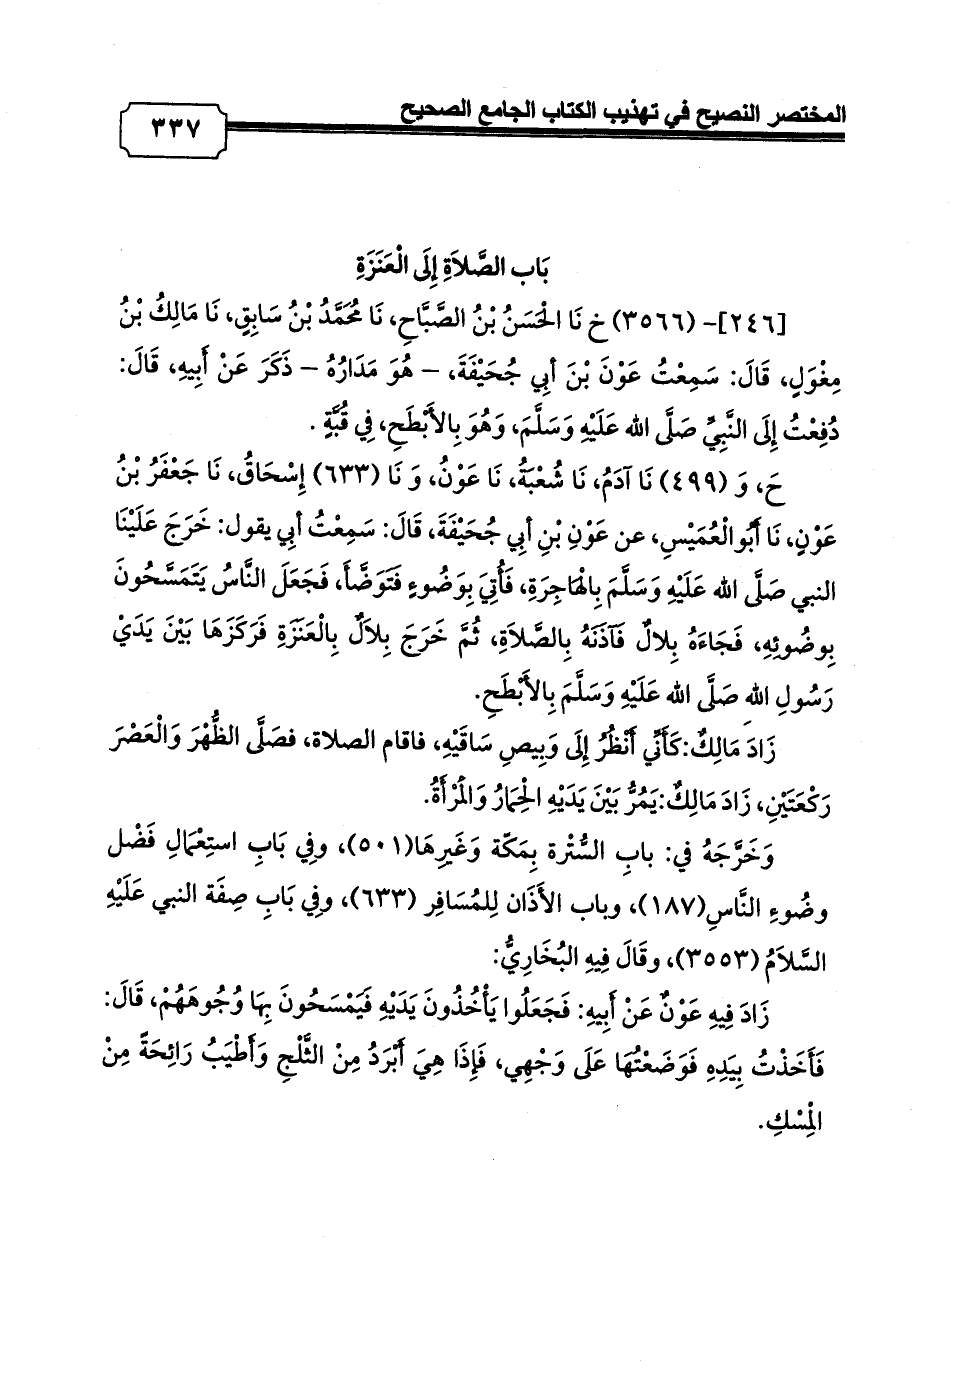 المختصر النصيح في تهذيب الكتاب الجامع الصحيح
٣٣٧
بَاب الصَّلاَةِ إِلَى الْعَنَزَةِ
[٢٤٦]- (٣٥٦٦) خ نَا الْحَسَنُ بْنُ الصَّبَّاحِ، نَا مُحَمَّدُ بْنُ سَابِقٍ، نَا مَالِكُ بْنُ
مِغْوَلٍ، قَالَ: سَمِعْتُ عَوْنَ بْنَ أبي جُحَيْفَةَ، – هُوَ مَدَارُهُ – ذَكَرَ عَنْ أَبِيهِ، قَالَ:
دُفِعْتُ إِلَى النَّبِيِّ صَلَّى الله عَلَيْهِ وَسَلَّمَ، وَهُوَ بِالأَبْطَحِ، فِي قُبَّةٍ .
حَ، وَ (٤٩٩) نَا آدَمُ، نَا شُعْبَةُ، نَا عَوْنُ، وَ نَا (٦٣٣) إِسْحَاقُ، نَا جَعْفَرُ بْنُ
عَوْنٍ، نَا أَبُوالْعُمَيْسِ، عن عَوْنِ بْنِ أبي جُحَيْفَةَ، قَالَ: سَمِعْتُ أبي يقول: خَرَجَ عَلَيْنَا
النبي صَلَّى الله عَلَيْهِ وَسَلَّمَ بِالْهَاجِرَةِ، فَأُتِيَ بِوَضُوءٍ فَتَوَضَّأَ، فَجَعَلَ النَّاسُ يَتَمَسَّحُونَ
بِوضُوئِهِ، فَجَاءَهُ بِلالٌ فَآذَنَهُ بِالصَّلاَةِ، ثُمَّ خَرَجَ بِلاَلٌ بِالْعَنَزَةِ فَرَكَزَهَا بَيْنَ يَدَيْ
رَسُولِ الله صَلَّى الله عَلَيْهِ وَسَلَّمَ بِالأَبْطَحِ.
زَادَ مَالِكٌ:كَأَنِّي أَنْظُرُ إِلَى وَبِيصِ سَاقَيْهِ، فاقام الصلاة، فصَلَّى الظُّهْرَ وَالْعَصْرَ
رَكْعَتَيْنِ، زَادَ مَالِكٌ:يَمُرُّ بَيْنَ يَدَيْهِ الْحِمَارُ وَالْمَرْأَةُ.
وَخَرَّجَهُ في: بابِ السُّتْرة بِمَكّة وَغَيرِهَا(٥٠١)، وفِي بَابِ استِعْمَالِ فَضْل
وضُوءِ النَّاسِ(١٨٧)، وباب الأَذَان لِلمُسَافِر (٦٣٣)، وفِي بَابِ صِفَة النبي عَلَيْهِ
السَّلاَمُ (٣٥٥٣)، وقَالَ فِيهِ البُخَارِيُّ:
زَادَ فِيهِ عَوْنٌ عَنْ أَبِيهِ: فَجَعَلُوا يَأْخُذُونَ يَدَيْهِ فَيَمْسَحُونَ بِهَا وُجُوهَهُمْ، قَالَ:
فَأَخَذْتُ بِيَدِهِ فَوَضَعْتُهَا عَلَى وَجْهِي، فَإِذَا هِيَ أَبْرَدُ مِنْ الثَّلْجِ وَأَطْيَبُ رَائِحَةً مِنْ
الْمِسْكِ.